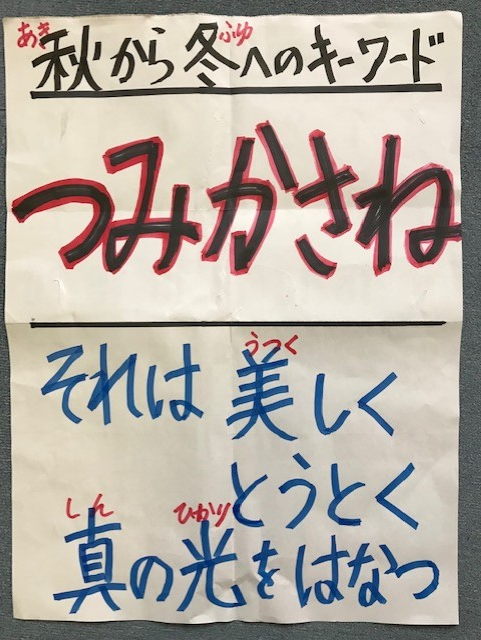 あき ふゆ
秋から冬へのキーワード
つみかさね
うつく
それは美しく
とうとく
しん ひかり
真の光をはなつ